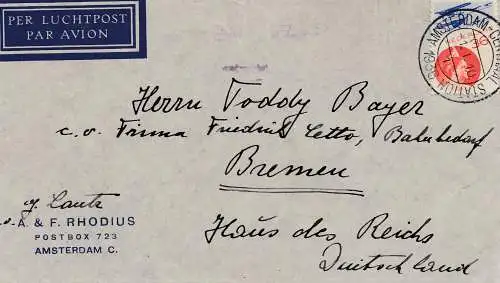 PER LUCHTPOST
PAR AVION
AMSTERDAM-CENTRAAL STATION
Herrn Toddy Bayer
c.o. Firma Friedrich Cetto, Bahnbedarf
Bremen
Haus des Reichs
Duitschland
A. & F. RHODIUS
POSTBOX 723
AMSTERDAM C.